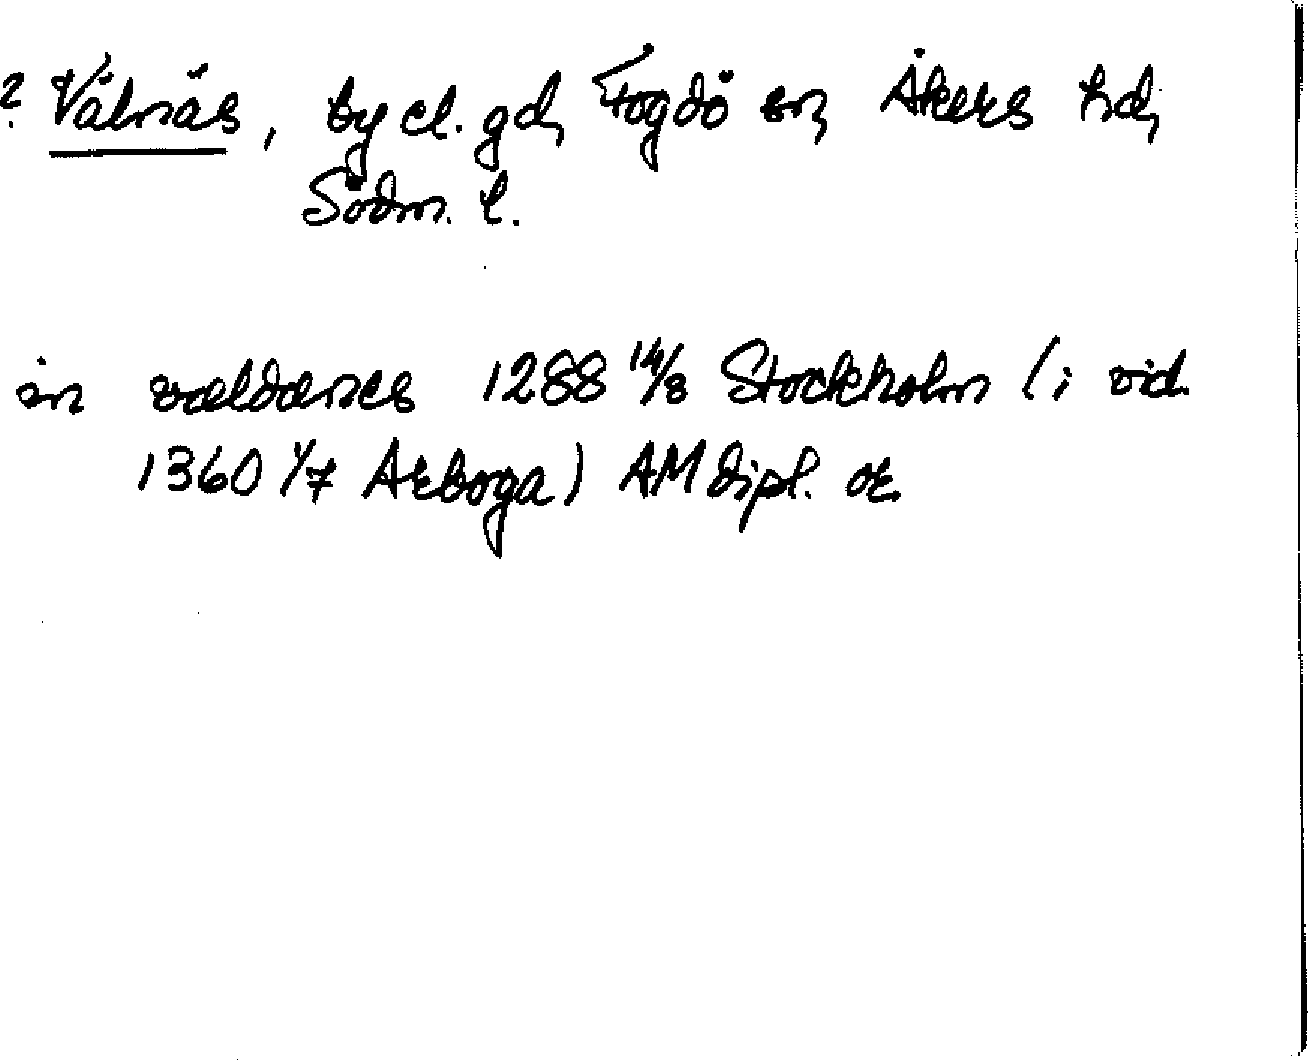 ? Välnäs, by el. gd, Fogdö sn, Åkers hd,
Södm. l.
in valdanes 1288 14/8 Stockholm (i vid.
1360 1/7 Arboga) AM dipl. or.